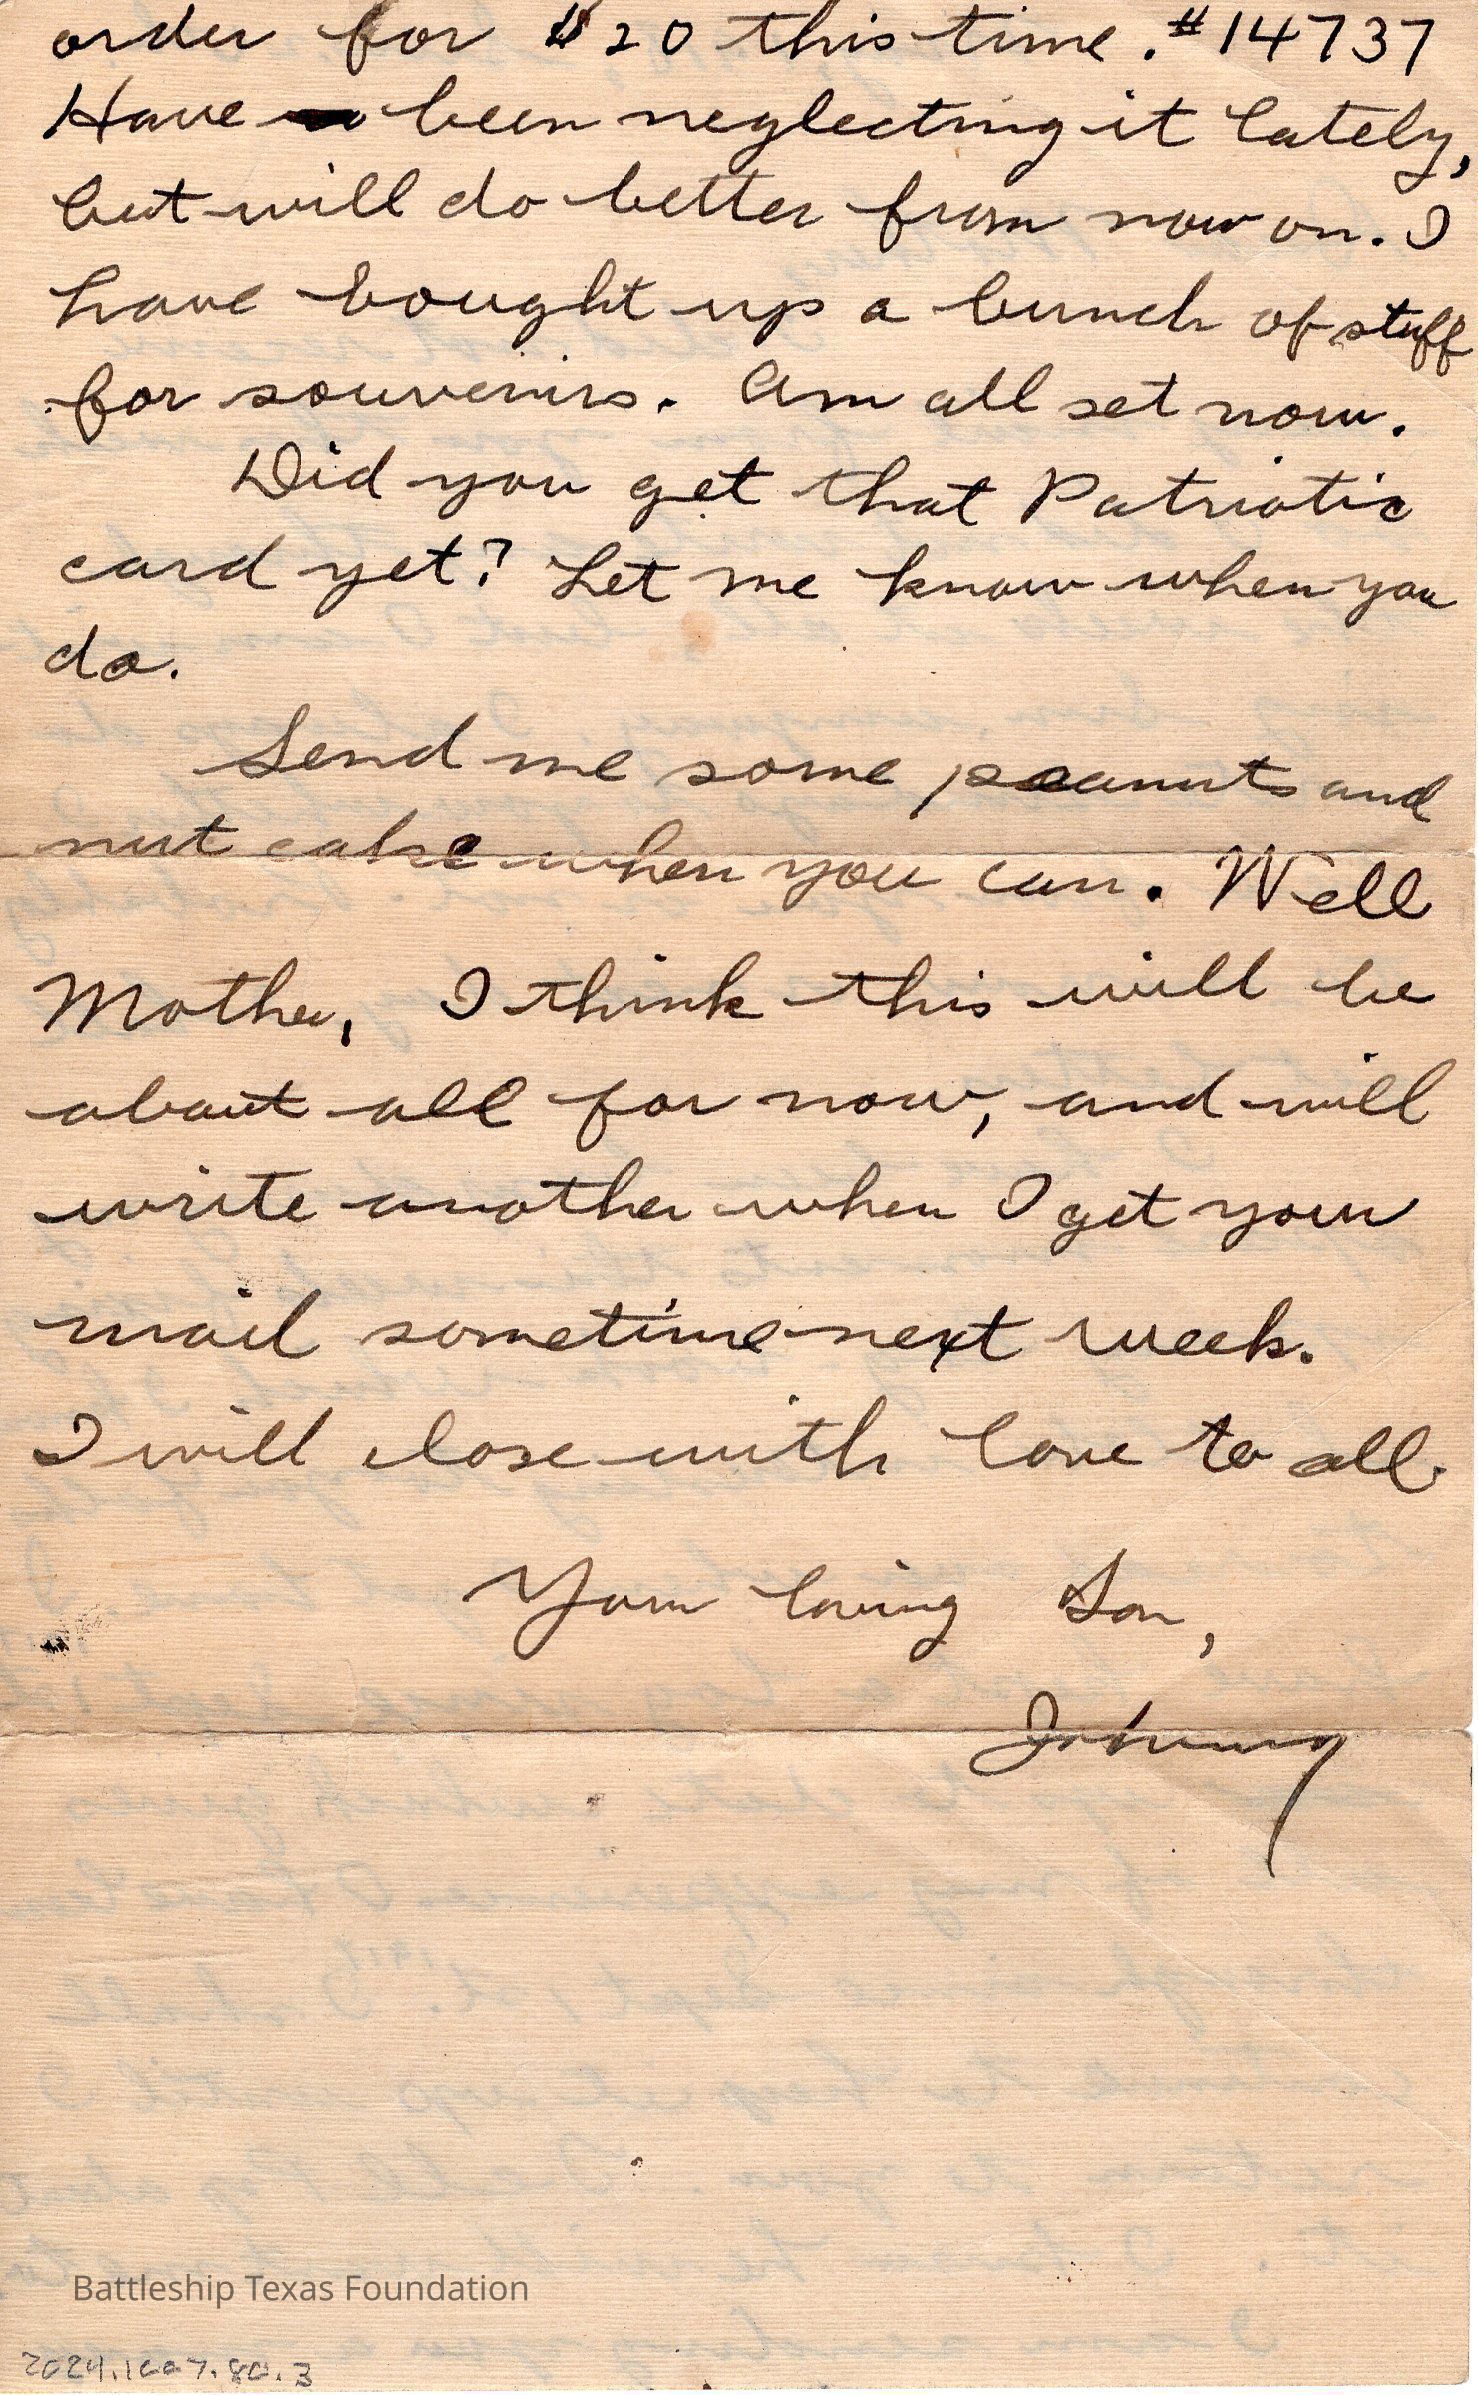 order for $20 this time. #14737
Have been neglecting it lately,
but will do better from now on. I
have bought up a bunch of stuff
for souvenirs. Am all set now.
Did you get that Patriotic
card yet? Let me know when you
do.
Send me some peanuts and
nut cake when you can. Well
Mother, I think this will be
about all for now, and will
write another when I get your
mail sometime next week.
I will close with love to all.
Your loving Son,
Johnny
Battleship Texas Foundation
2024.1007.80.3